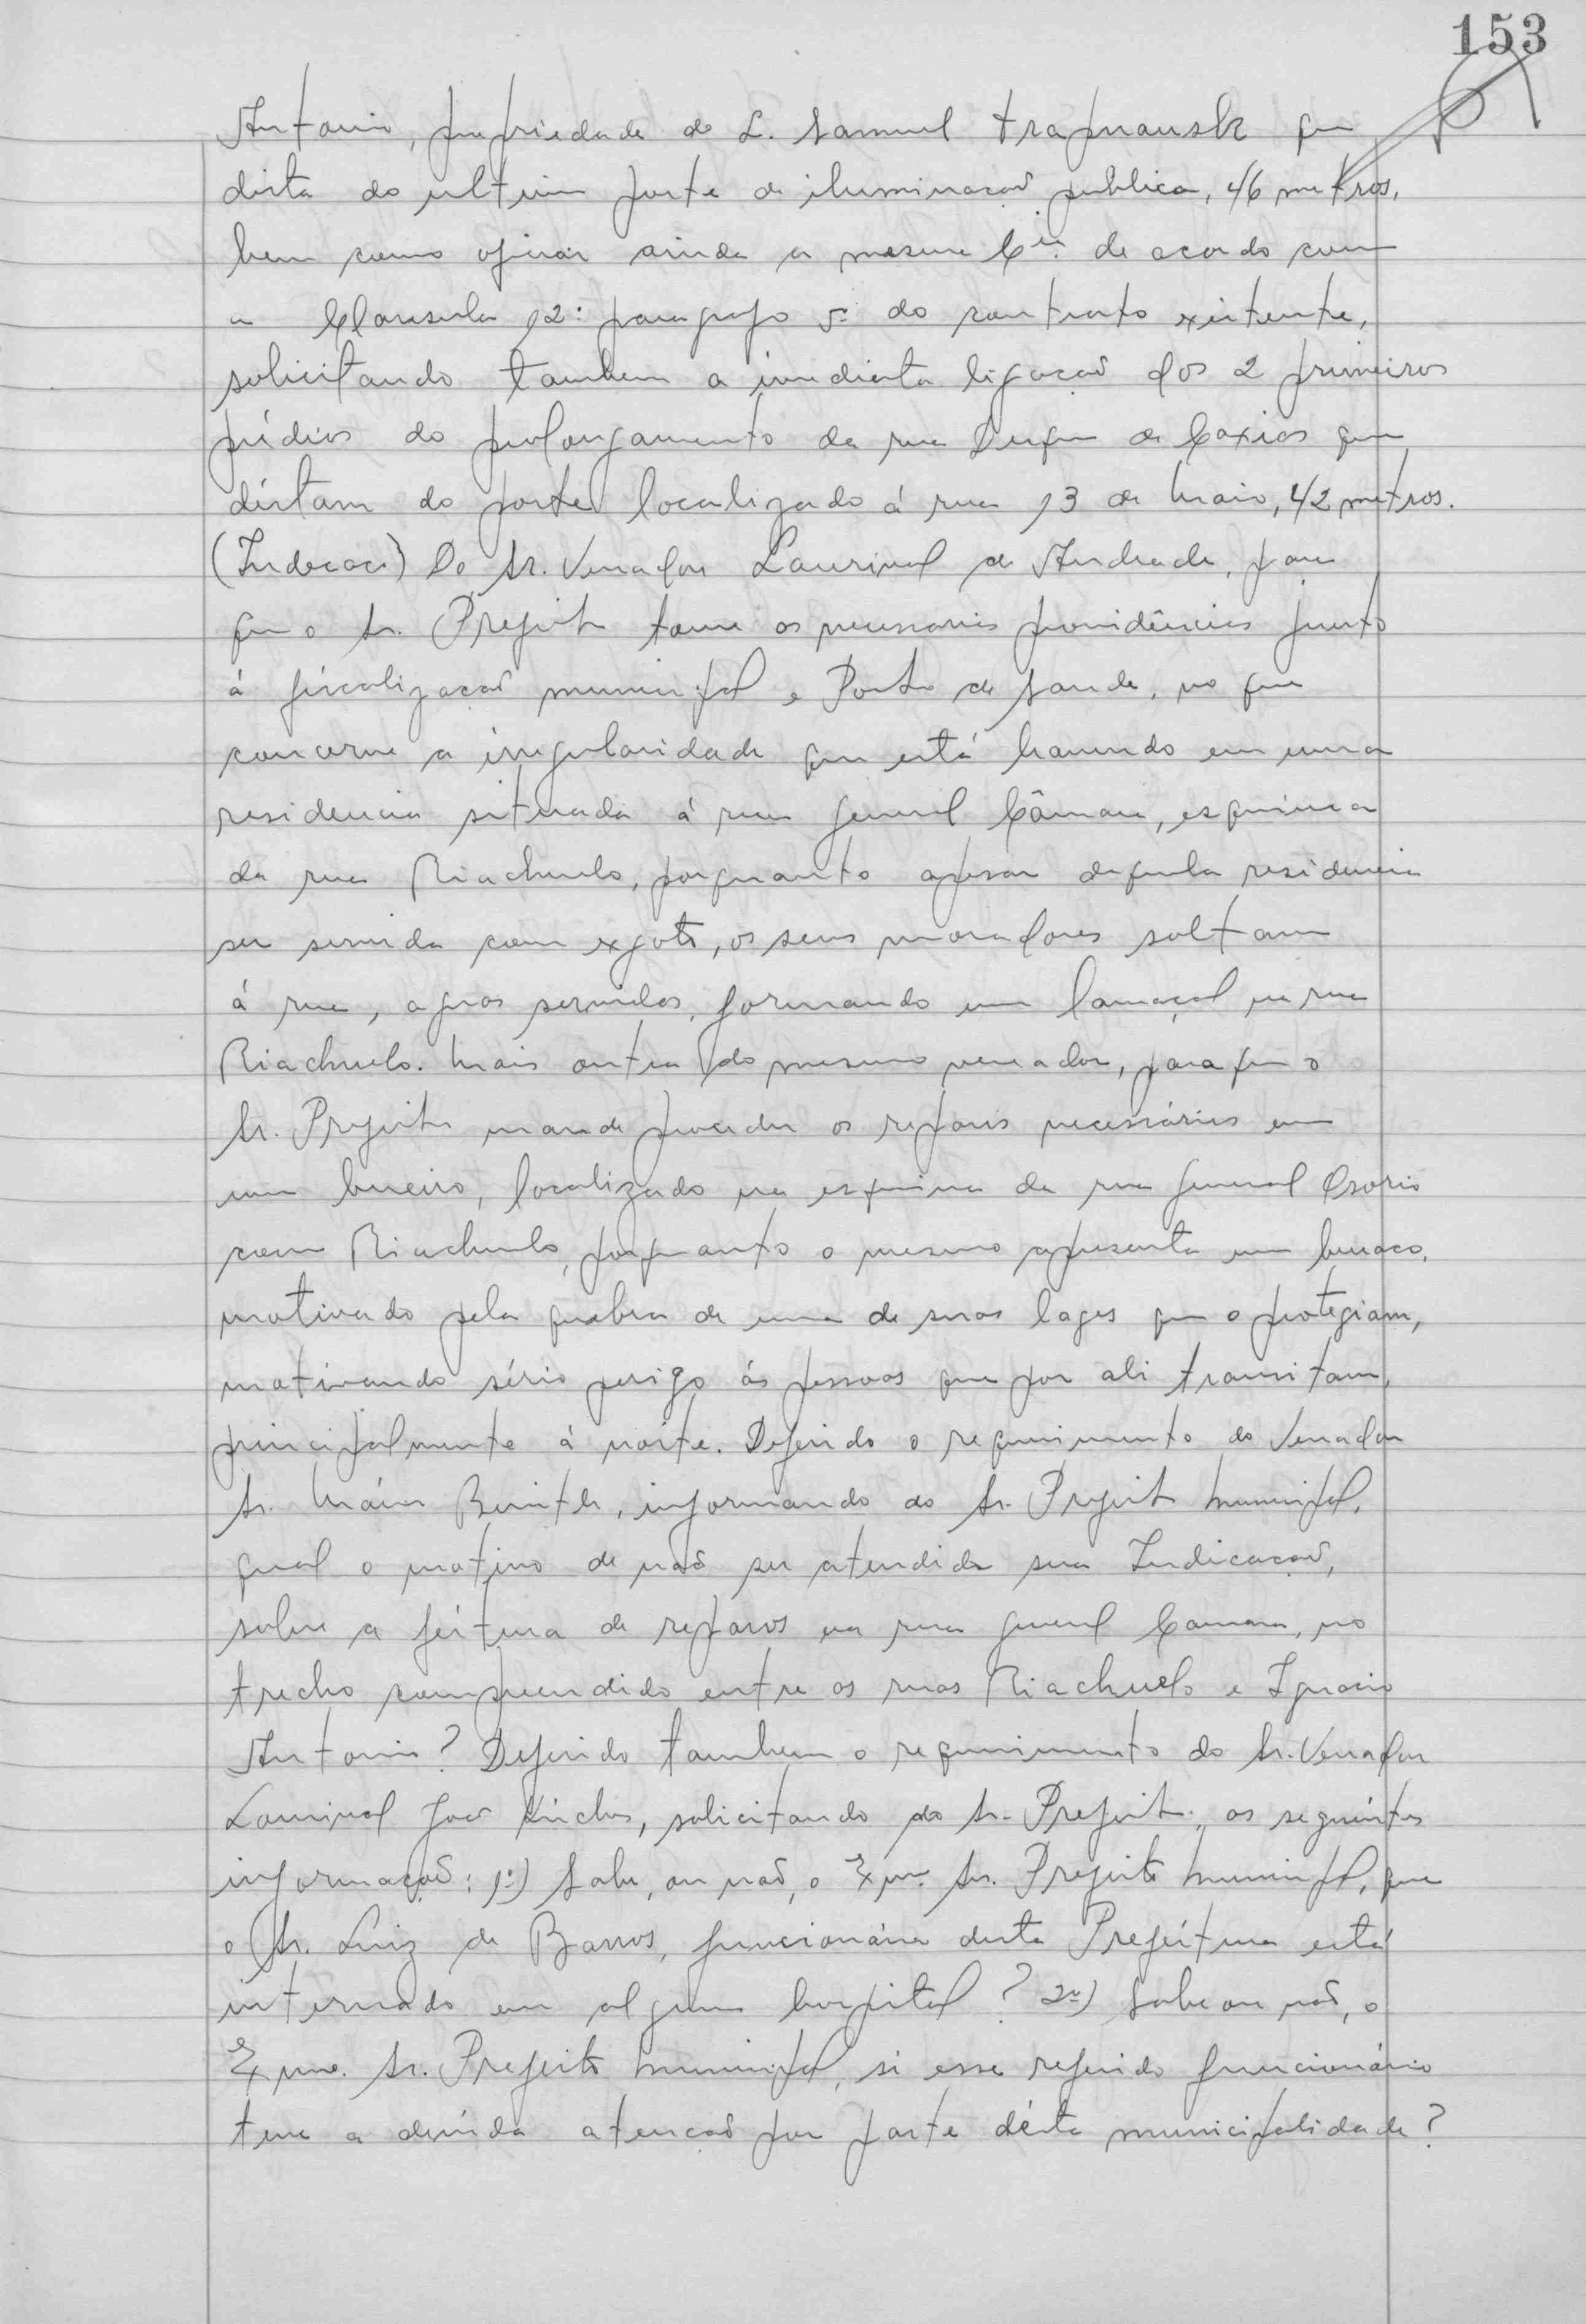 153
Antonio, propriedade do L. Samuel Trapnausk que
dista do ultimo poste de iluminacaõ publica, 46 metros,
bem como oficiar ainda a mesma Cia. de acordo com
a Clausula 12ª paragrafo 5º do contrato existente,
solicitando tambem a imediata ligaçaõ dos 2 primeiros
prédios do prolongamento da rua Duque de Caxias que
distam do poste localizado á rua 13 de Maio, 42 metros.
(Indecacs) Do Sr. Vereador Laurival de Andrade, para
que o Sr. Prefeito tome as necessarias providências junto
á fiscalizaçaõ municipal e Posto de Saude, no que
concerne a irregularidade que está havendo em uma
residencia situada á rua General Câmara, esquina
da rua Riachuelo, porquanto apesar daquela residencia
ser servida com exgoto, os seus moradores soltam
á rua, aguas servidas, formando um lamaçal na rua
Riachuelo. Mais outra do mesmo vereador, para que o
Sr. Prefeito mande proceder os reparos necessários em
um bueiro, localizado na esquina da rua General Osorio
com Riachuelo, porquanto o mesmo apresenta um buraco,
motivado pela quebra de uma de suas lages que o protegiam,
motivando sério perigo ás pessoas que por ali transitam,
principalmente á noite. Deferido o requerimento do Vereador
Sr. Mário Benites, informando do Sr. Prefeito Municipal,
qual o motivo de naõ ser atendida sua Indicacaõ,
sobre a feitura de reparos na rua General Camara, no
trecho compreendido entre as ruas Riachuelo e Ignacio
Antonio? Deferido tambem o requerimento do Sr. Vereador
Laurival Joaõ, solicitando do Sr. Prefeito, as seguintes
informaçoẽs: 1º) Sabe, ou naõ, o Exmº. Sr. Prefeito Municipal, que
o Sr. Luiz de Barros, funcionário desta Prefeitura está
internado em algum hospital? 2º) Sabe ou naõ, o
Exmo. Sr. Prefeito Municipal, si esse referido funcionário
teve a devida atencaõ por parte désta municipalidade?